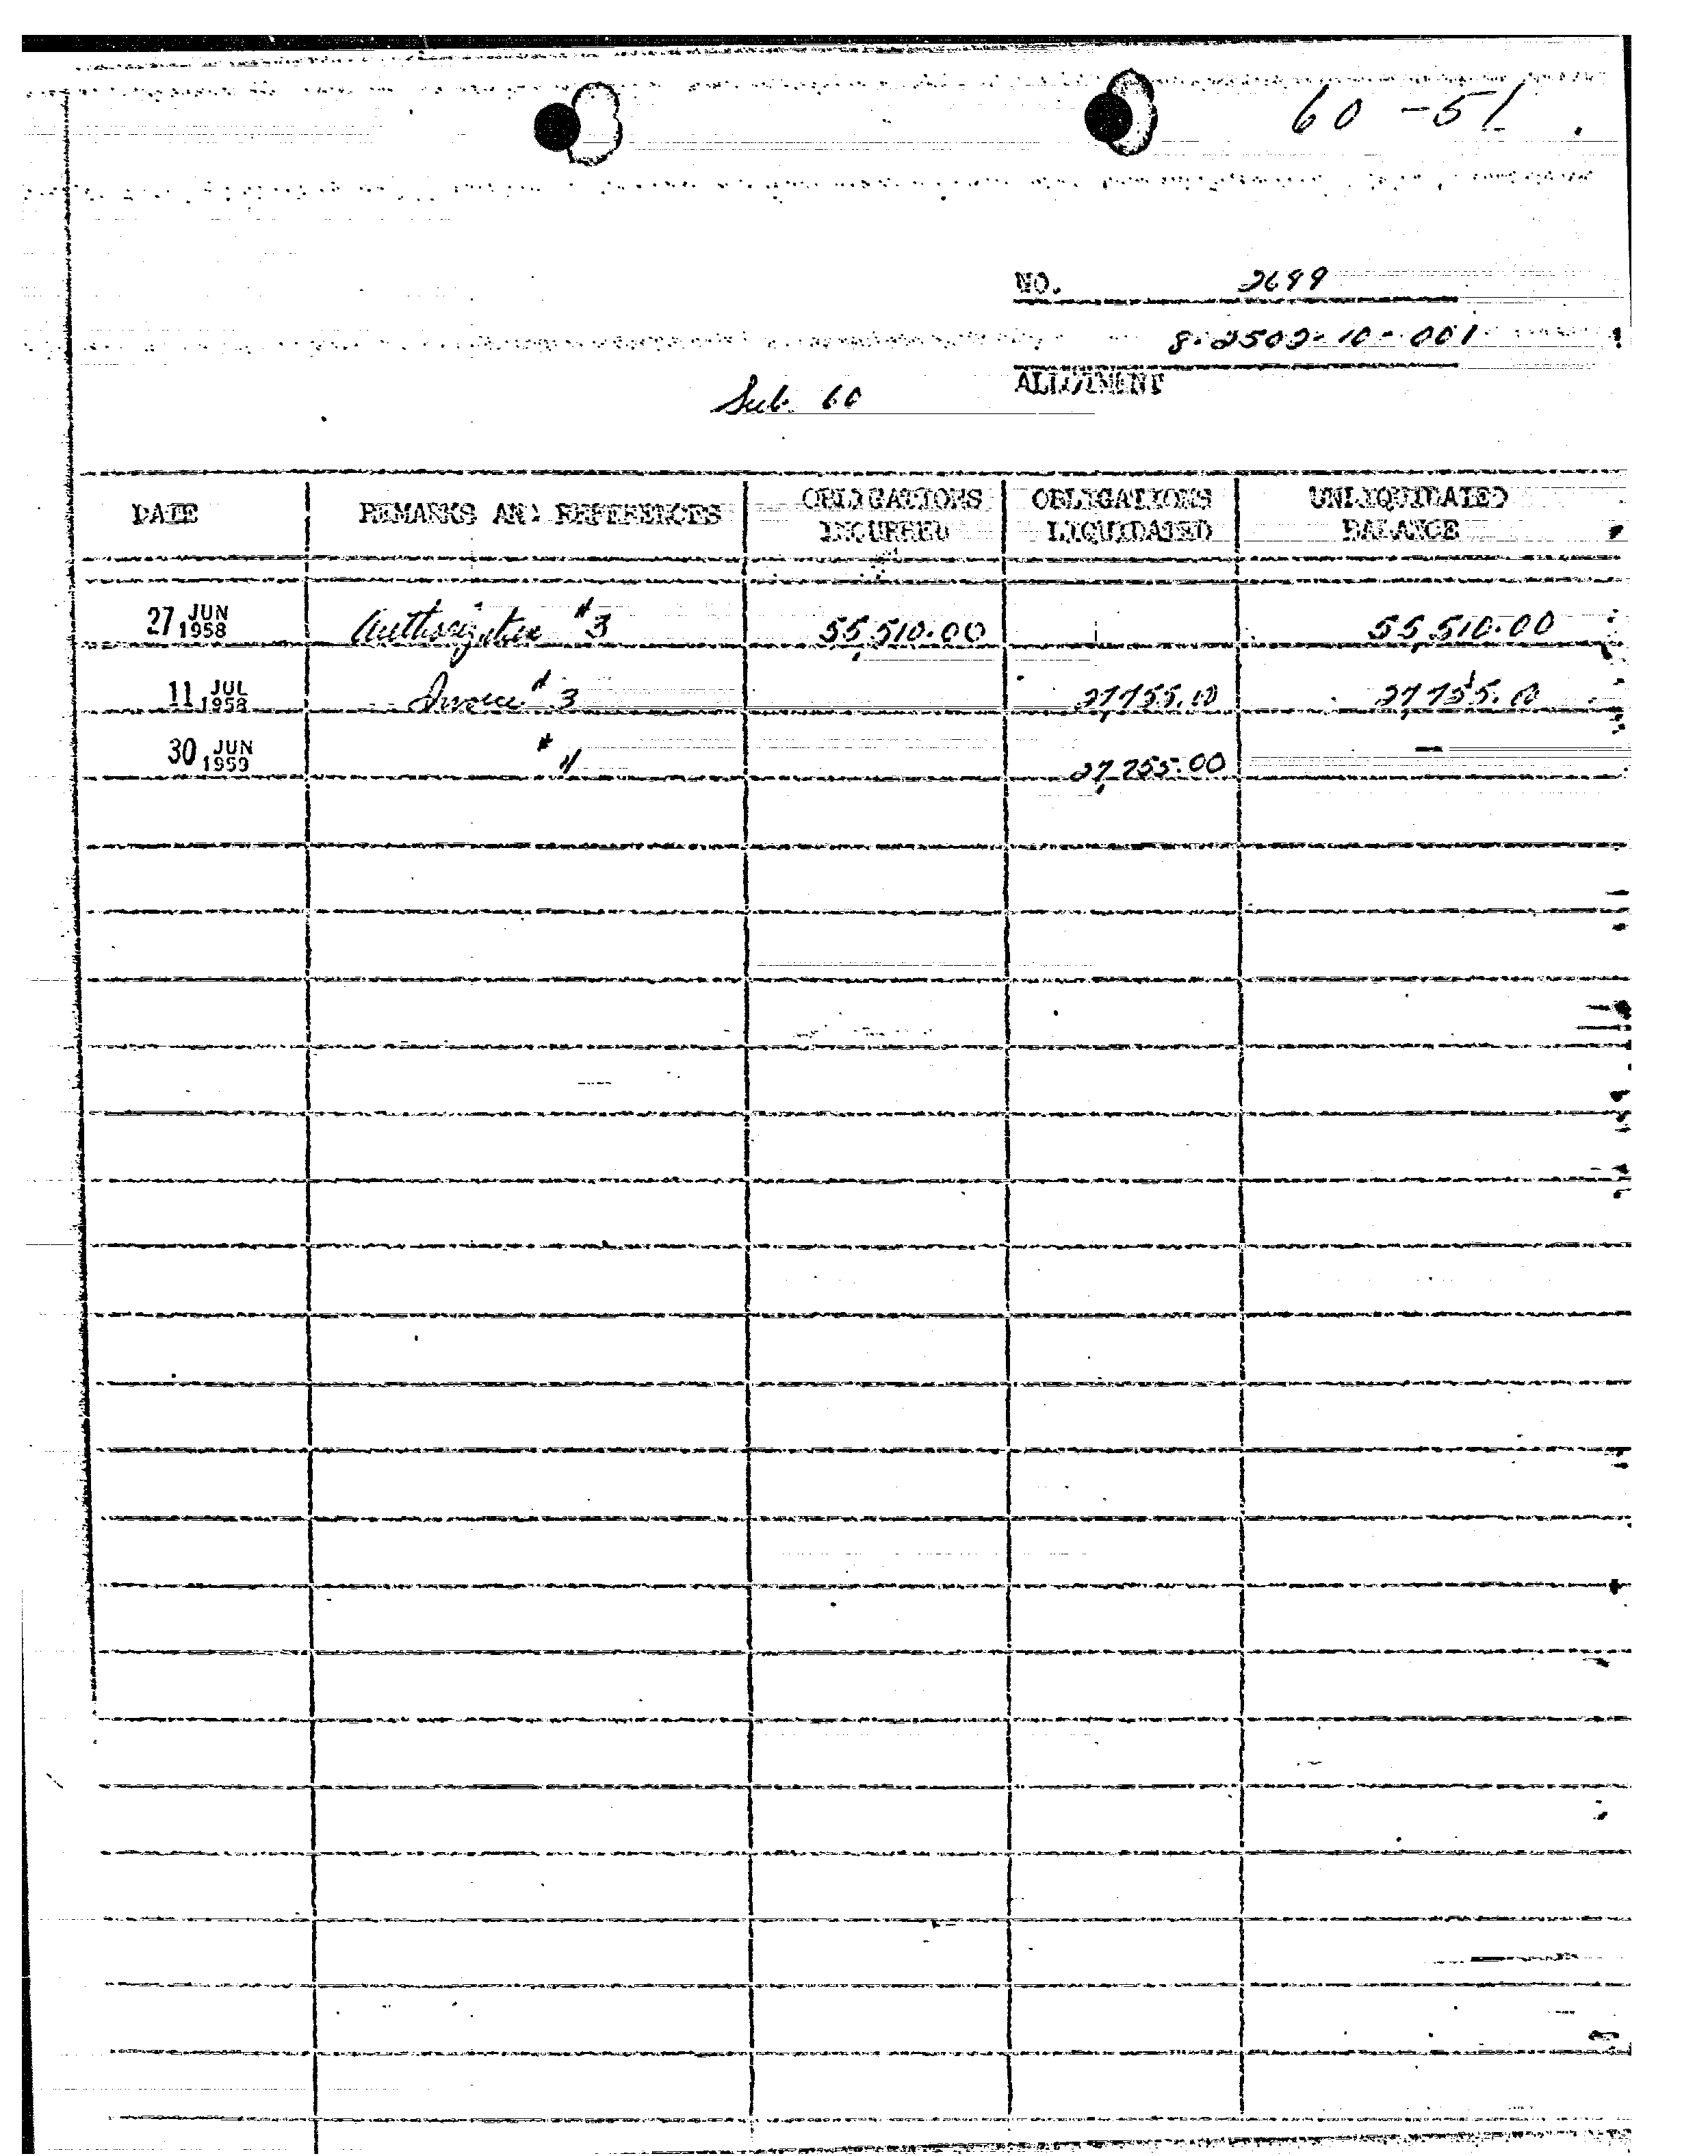 60-51
NO. 2699
8-2502-10-001
ALLOTMENT
Sub. 60
DATE REMARKS AND REFERENCES OBLIGATIONS INCURRED OBLIGATIONS LIQUIDATED UNLIQUIDATED BALANCE
27 JUN 1958 Authorization #3 55,510.00 55,510.00
11 JUL 1958 Invoice #3 27,755.00 27,755.00
30 JUN 1959 # 27,755.00 —